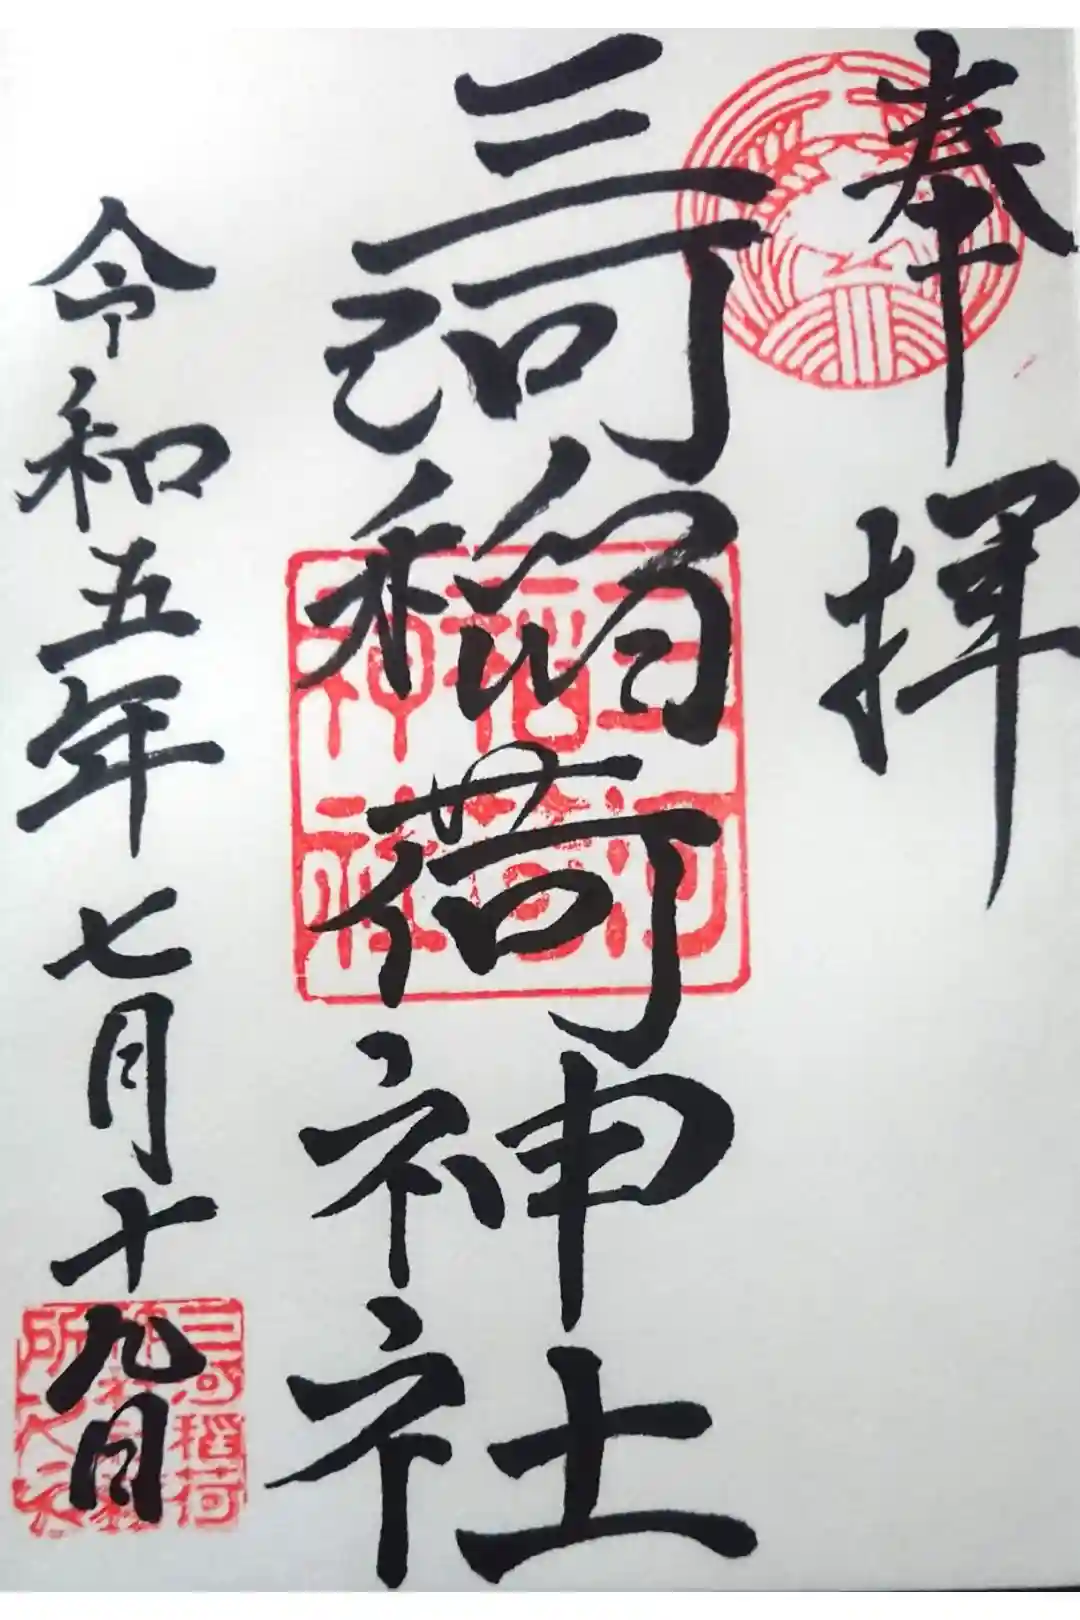 奉拝
三河稲荷神社
三河
稲荷
神社
令和五年七月十九日
三河稲荷